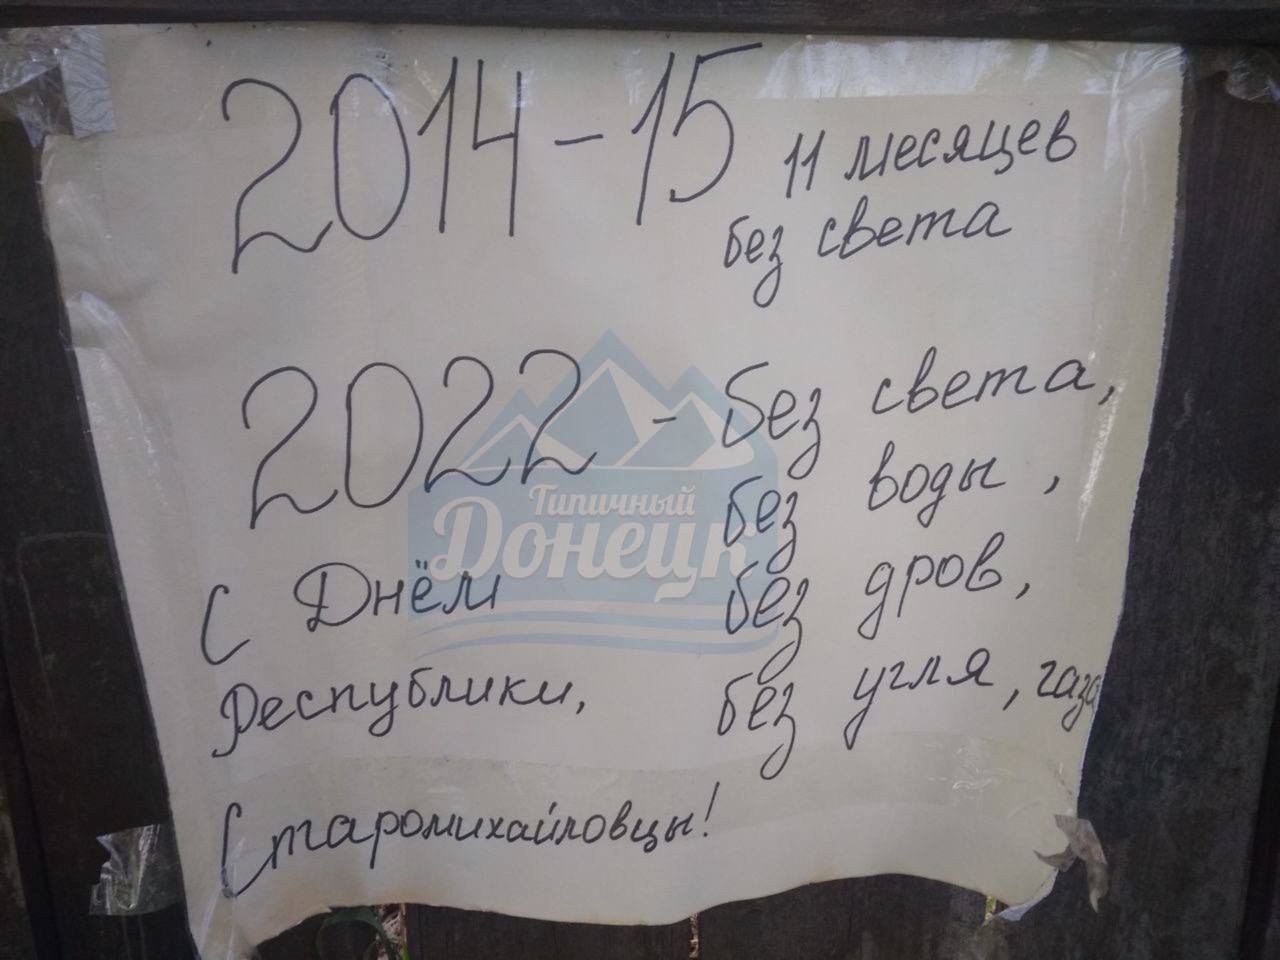 2014-15 11 месяцев
без света
2022 - без света,
без воды,
Типичный
Донецк
С Днём без дров,
Республики, без угля, газа
Старомихайловцы!